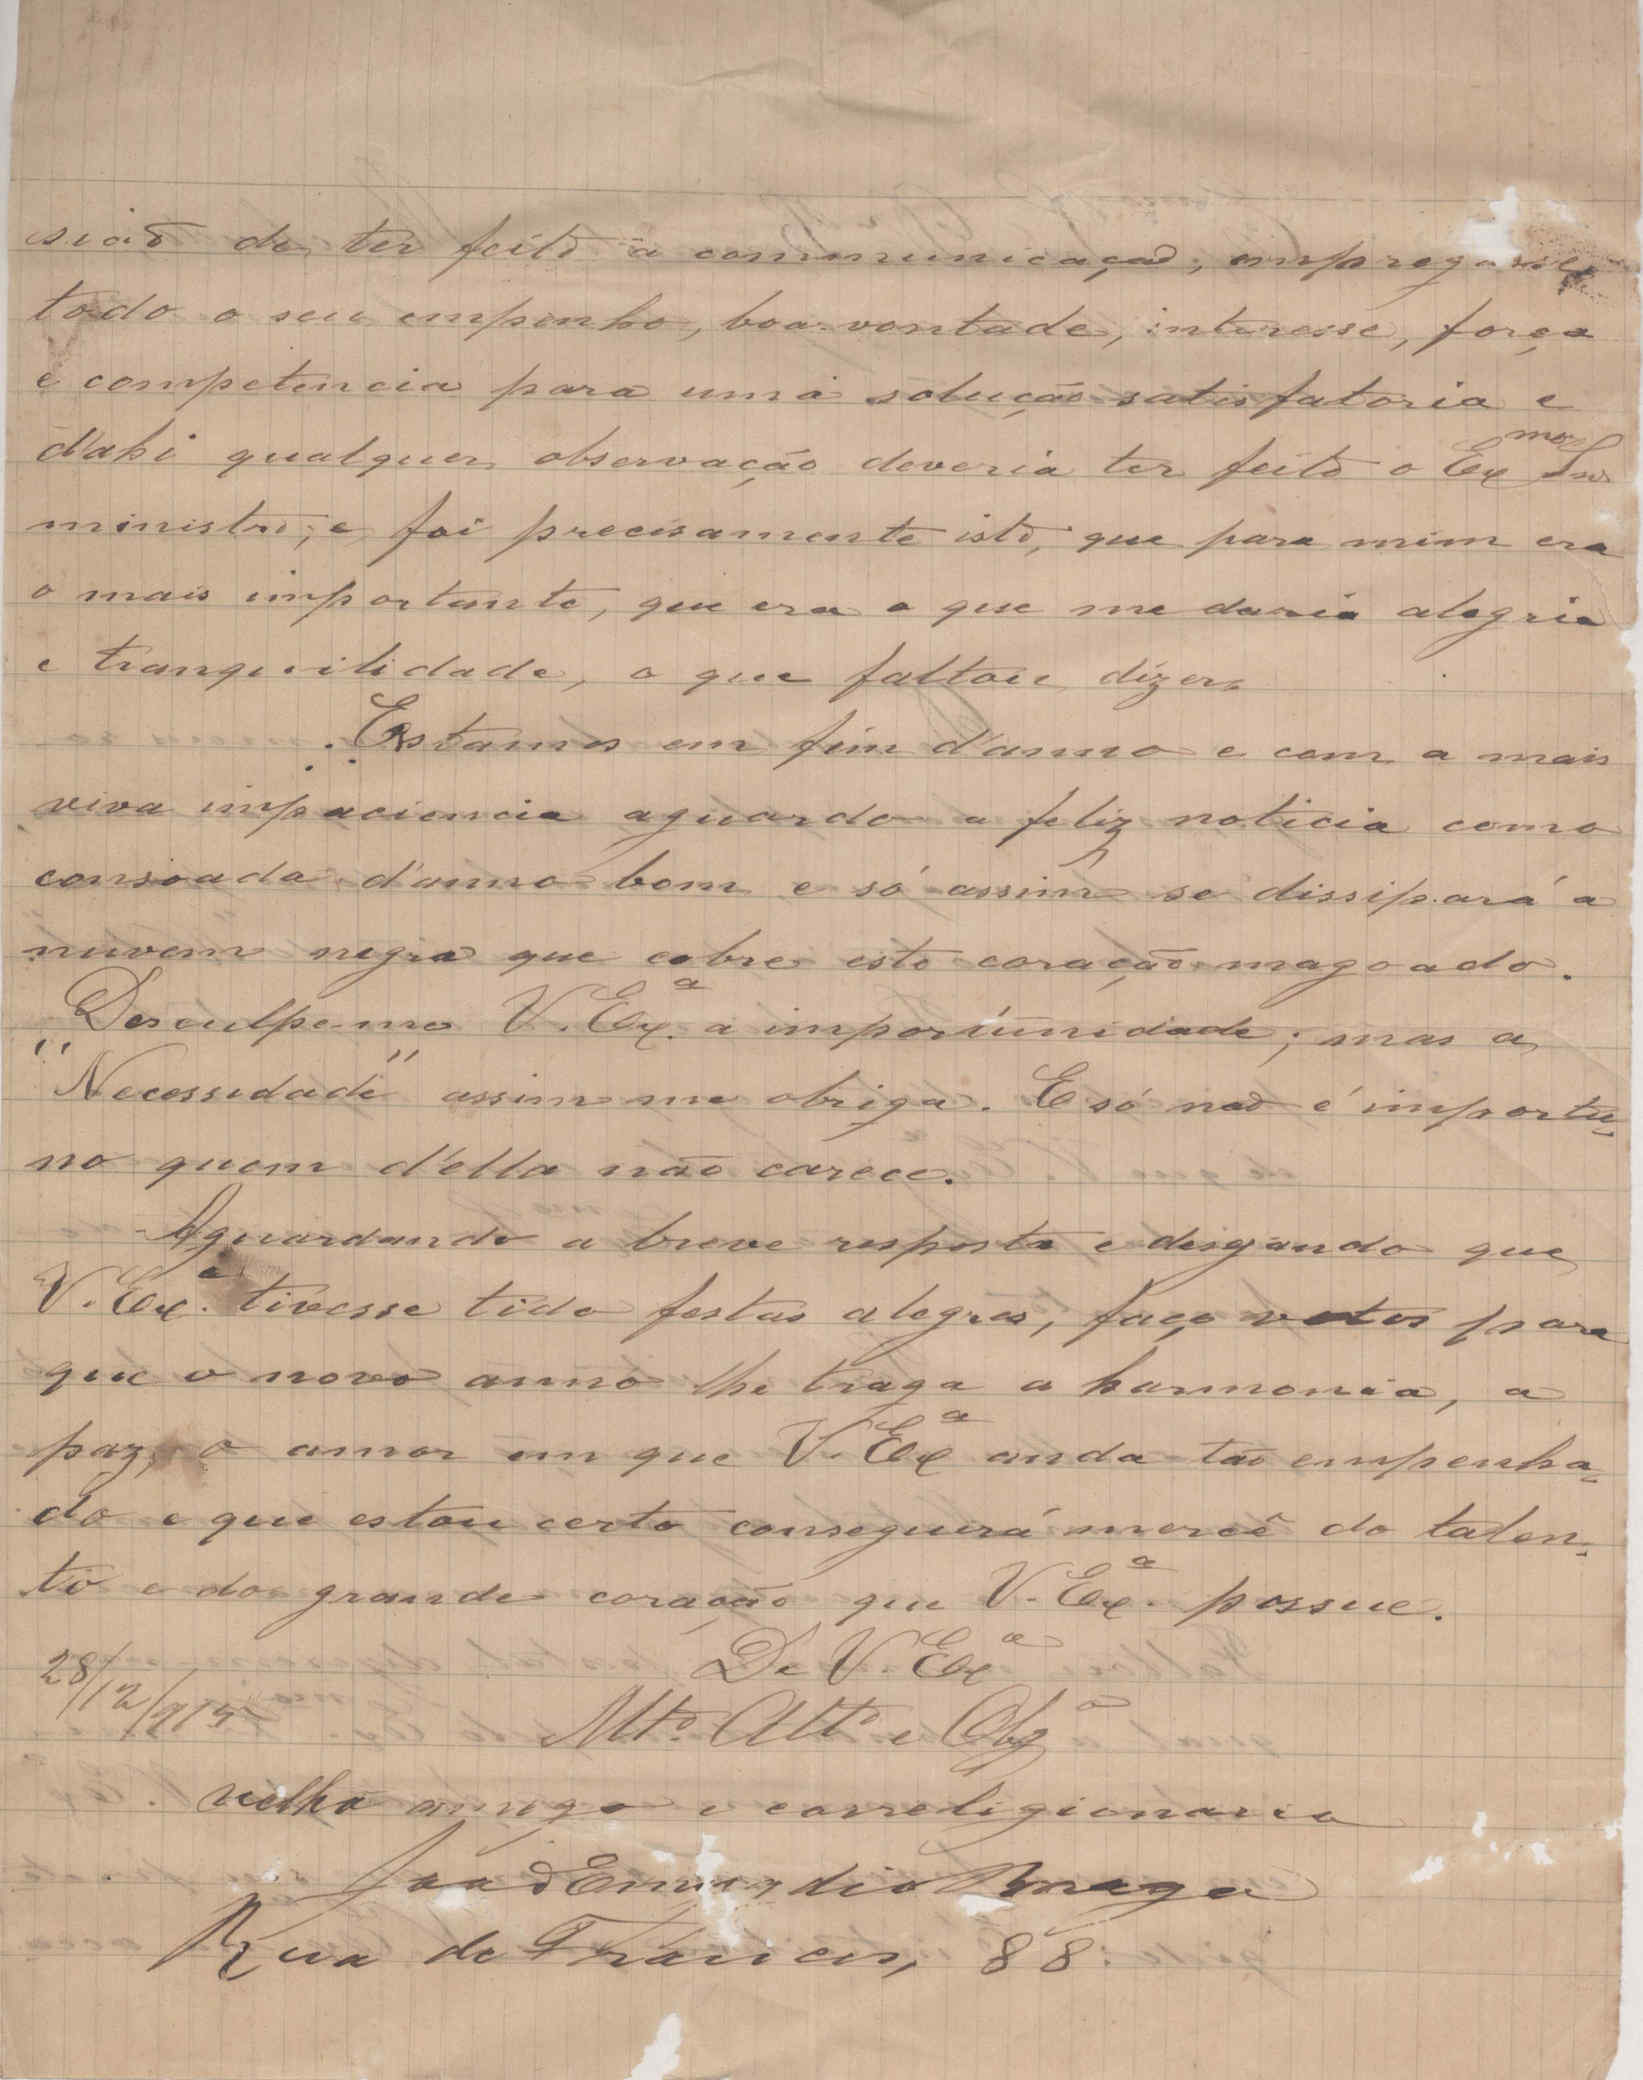 sião de ter feito a communicação, empregasse
todo o seu empenho, boa vontade, interesse, força
e competencia para uma solução satisfatoria e
d'ahi qualquer observação deveria ter feito o Ex.mo Snr.
ministro; e foi precisamente isto, que para mim era
o mais importante, que era o que me daria alegria
e tranquilidade, o que faltou dizer.
Estamos em fim d'anno e com a mais
viva impaciencia aguardo a feliz noticia como
consoada d'anno bom e só assim se dissipará a
nuvem negra que cobre este coração magoado.
Desculpe-me V. Ex.a a importunidade; mas a
"Necessidade" assim me obriga. E só não é importu-
no quem d'ella não carece.
Aguardando a breve resposta e desejando que
V. Ex.a tivesse tido festas alegres, faço votos para
que o novo anno lhe traga a harmonia, a
paz, o amor em que V. Ex.a anda tão empenha-
do e que estou certo conseguirá mercê do talen-
to e do grande coração que V. Ex.a possue.
De V. Ex.a
28/12/915
Mto. Atto. e Obg.o
velho amigo e correligionario
João Emygdio Braga
Rua de Trancos, 88.